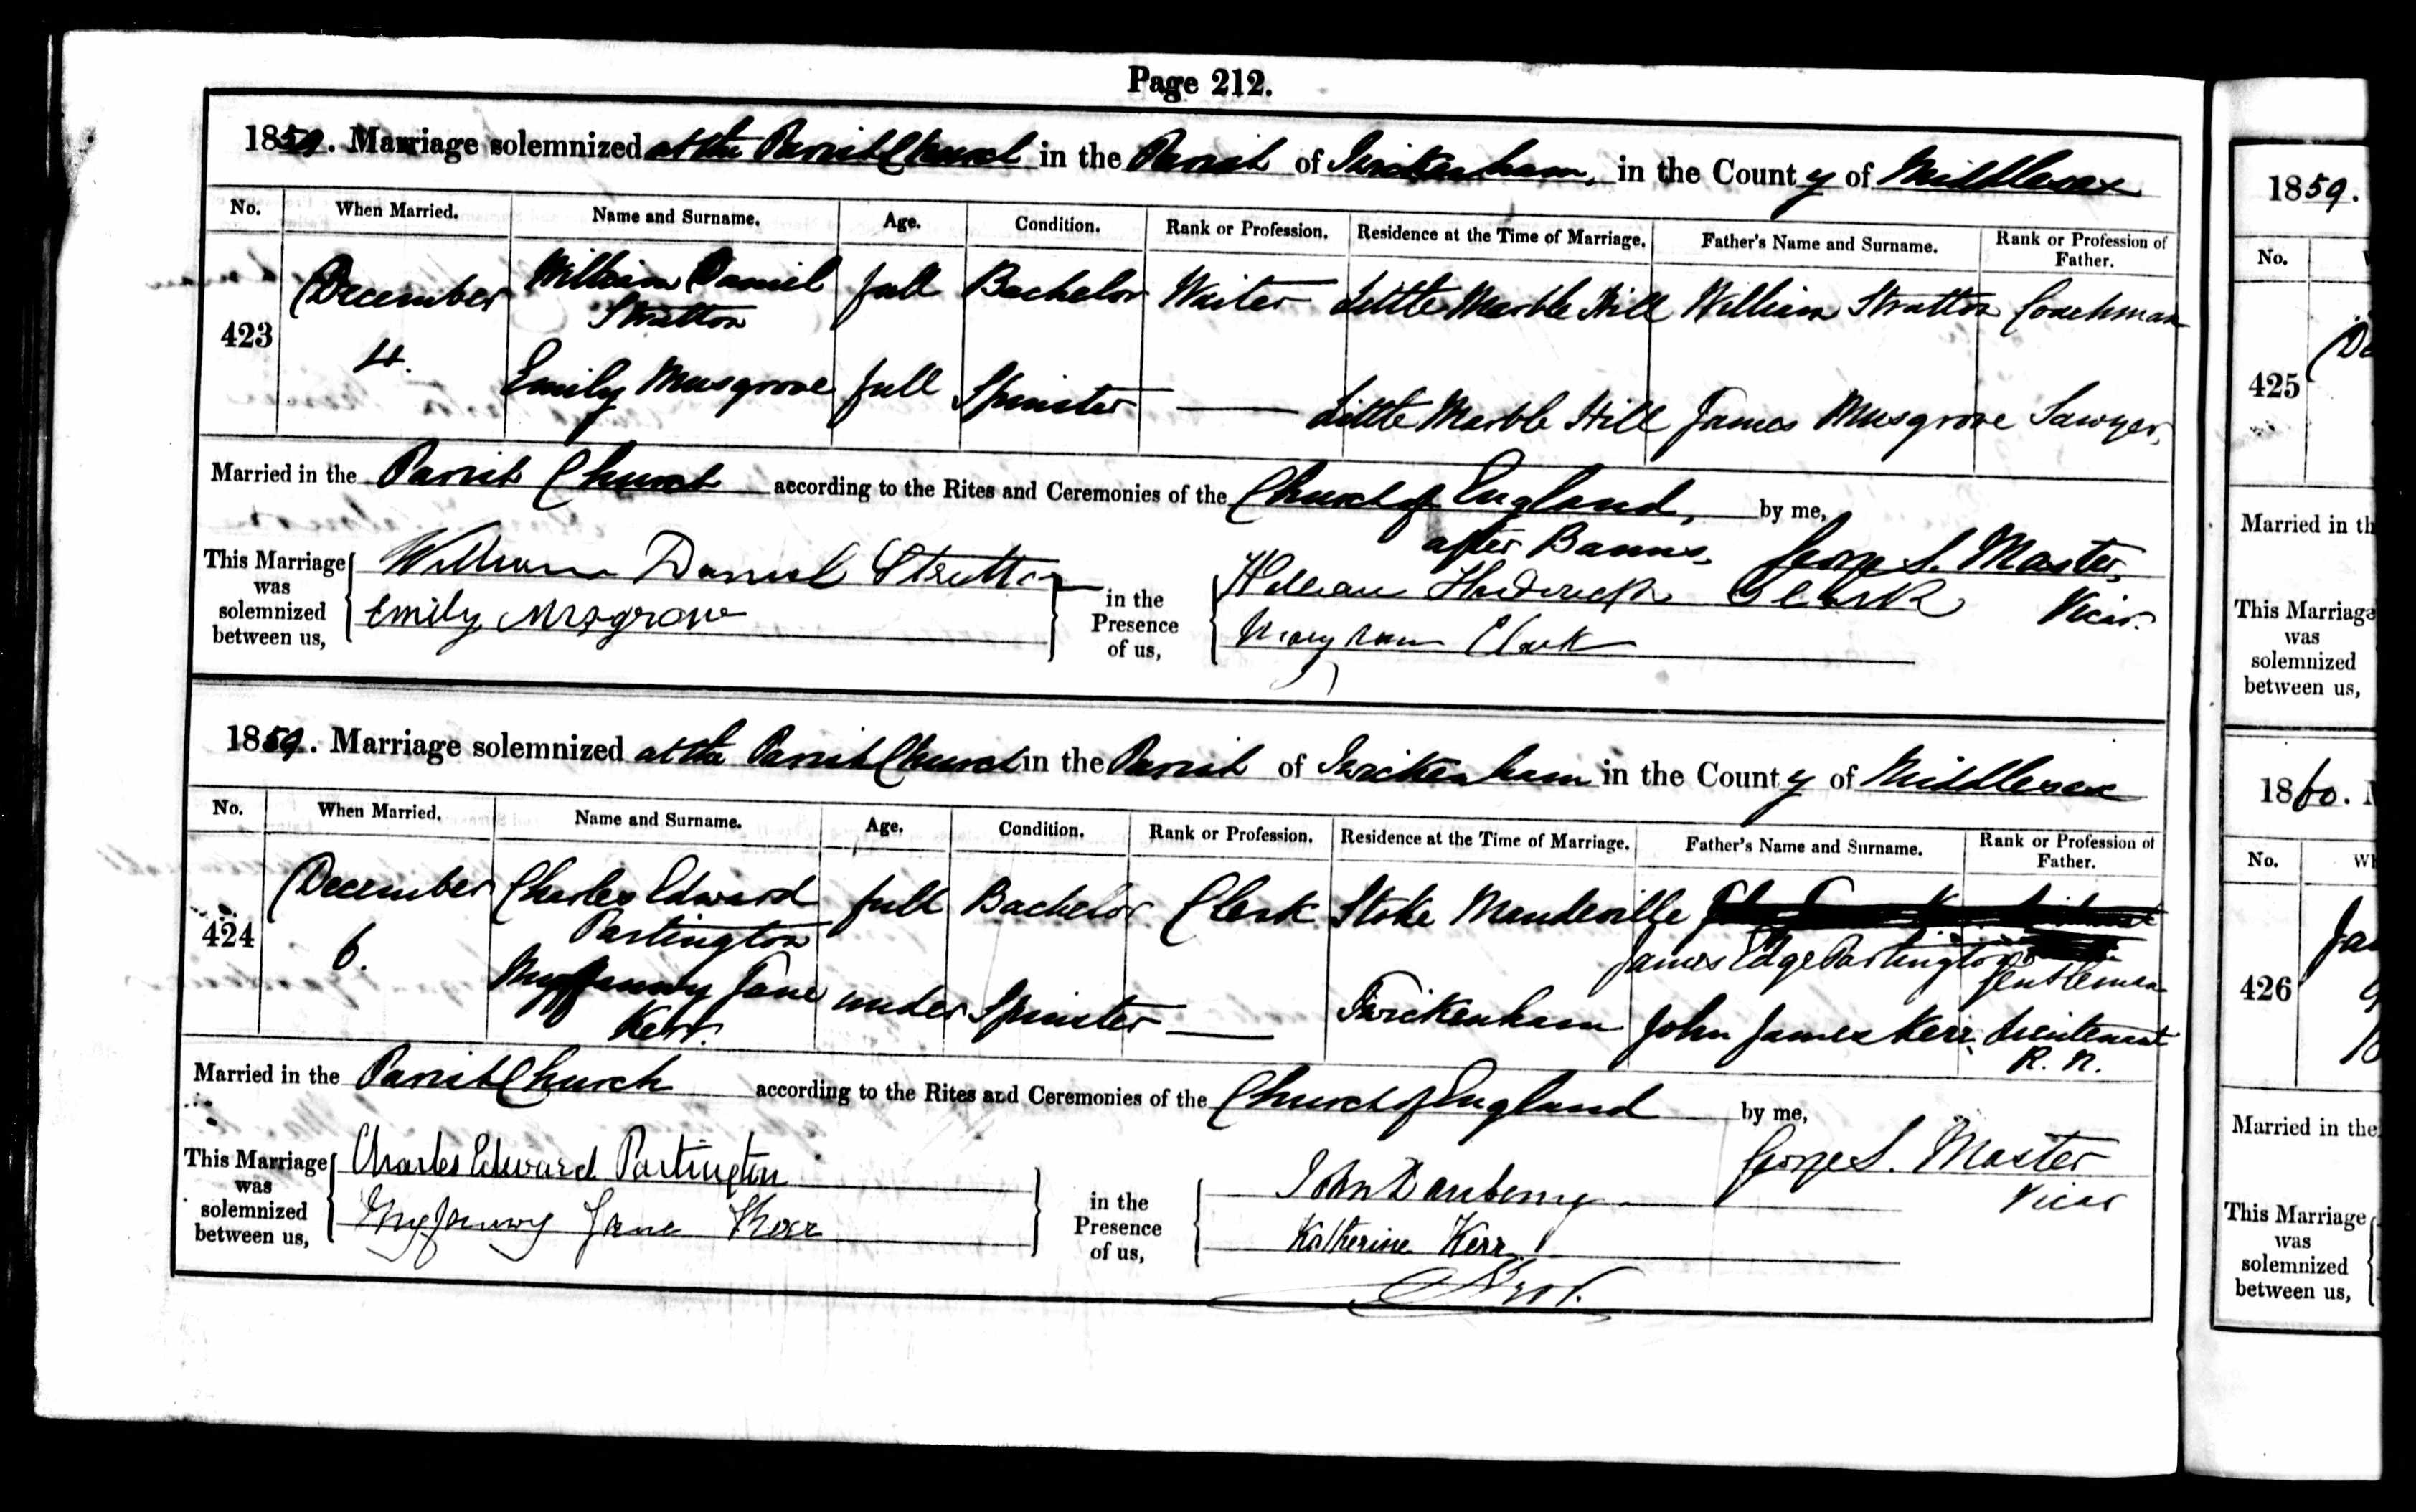 Page 212.
1859. Marriage solemnized at the Parish Church in the Parish of Twickenham, in the County of Middlesex
No. When Married. Name and Surname. Age. Condition. Rank or Profession. Residence at the Time of Marriage. Father's Name and Surname. Rank or Profession of Father.
423 December 4. William Daniel Stratton full Bachelor Waiter Little Marble Hill William Stratton Coachman
Emily Musgrove full Spinster — Little Marble Hill James Musgrove Sawyer,
Married in the Parish Church according to the Rites and Ceremonies of the Church of England, by me,
after Banns, George S. Master,
Vicar.
This Marriage was solemnized between us, William Daniel Stratton
Emily Musgrove
in the Presence of us, William Clark
Mary Ann Clark
1859. Marriage solemnized at the Parish Church in the Parish of Twickenham in the County of Middlesex
No. When Married. Name and Surname. Age. Condition. Rank or Profession. Residence at the Time of Marriage. Father's Name and Surname. Rank or Profession of Father.
424 December 6. Charles Edward Partington full Bachelor Clerk Stoke Mandeville James Edge Partington Gentleman
Myfanwy Jane Kerr. under Spinster — Twickenham John James Kerr. Lieutenant R. N.
Married in the Parish Church according to the Rites and Ceremonies of the Church of England by me,
George S. Master
Vicar
This Marriage was solemnized between us, Charles Edward Partington
Myfanwy Jane Kerr
in the Presence of us, John Daubeny
Katherine Kerr
1859.
No.
425
Married in th
This Marriage
was
solemnized
between us,
1860.
No.
426
Married in the
This Marriage
was
solemnized
between us,